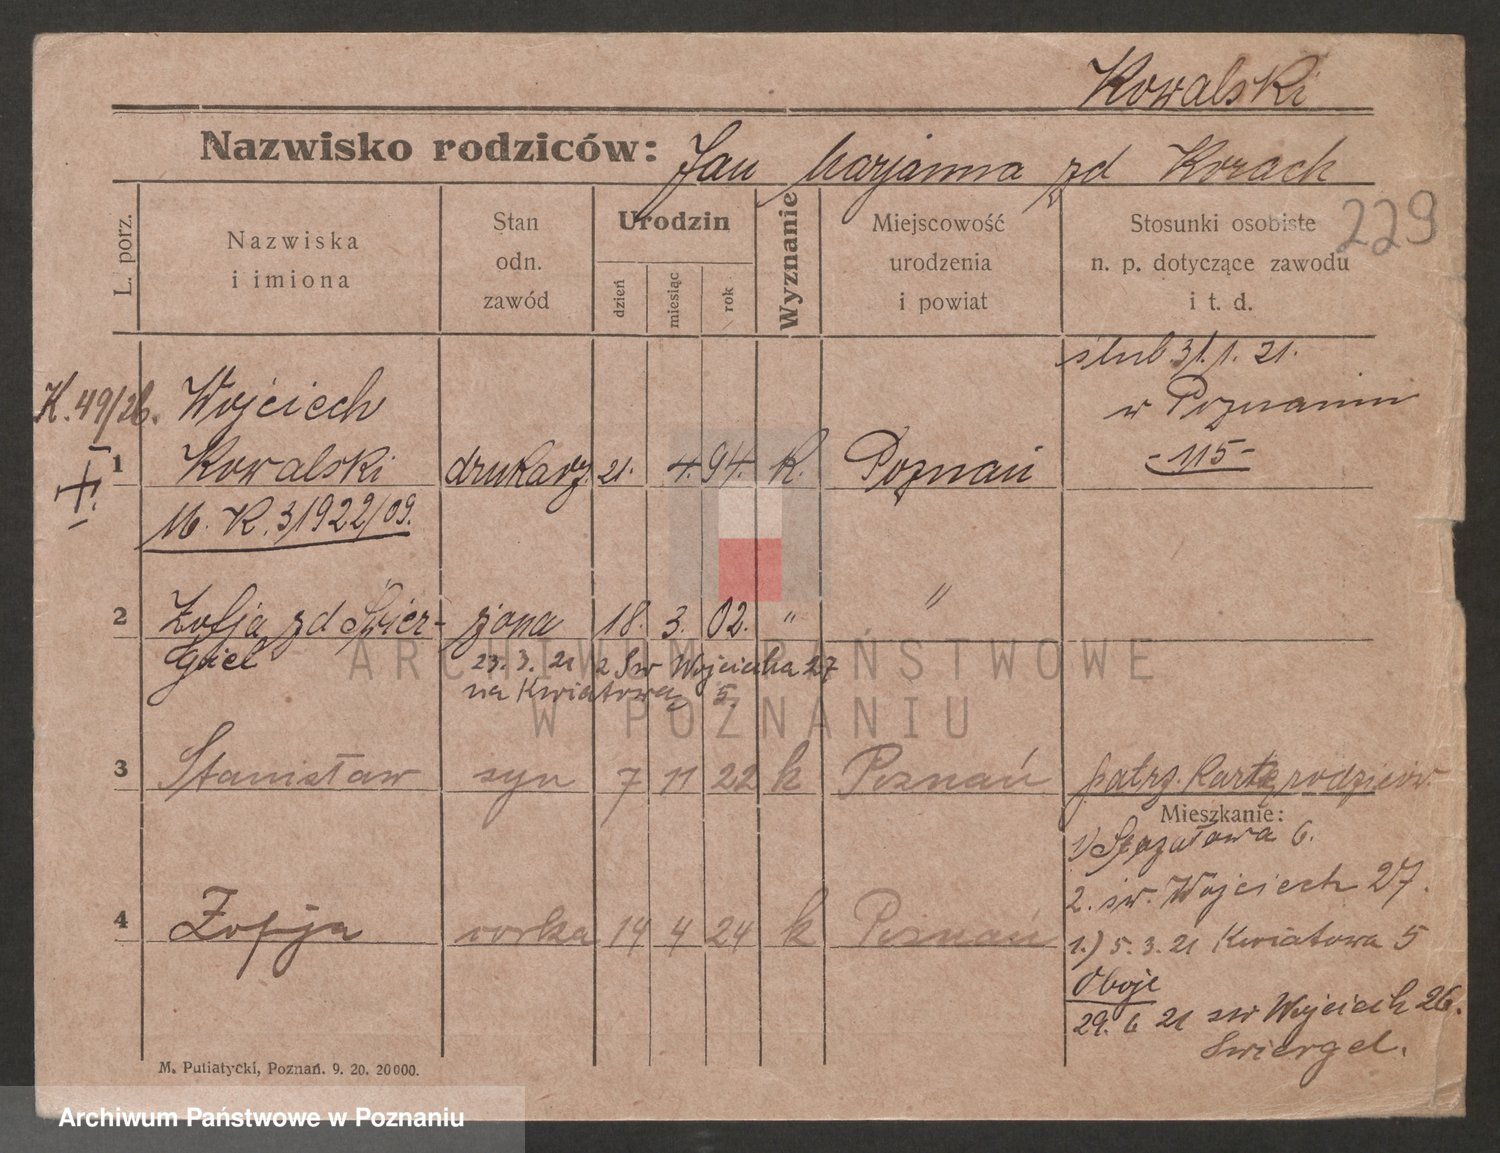 Kowalski
Nazwisko rodziców: Jan Marjanna zd Korach
229
L. porz.
Nazwiska i imiona
Stan odn. zawód
Urodzin
dzień
miesiąc
rok
Wyznanie
Miejscowość urodzenia i powiat
Stosunki osobiste n. p. dotyczące zawodu i t. d.
ślub 31.1.21.
w Poznaniu
-115-
K.49/26.
Wojciech
1 Kowalski drukarz. 21. 4. 94. k. Poznań
M. K. 3/1922/09.
2 Zofja zd Świer- żona 18. 3. 02. " "
giel
23. 3. 21 2 Św Wojciecha 27
na Kwiatową 5.
3 Stanisław syn 7 11 22 k Poznań patrz. Kartę rodziców
Mieszkanie:
6.
2. św. Wojciech 27.
4 Zofja corka 14 4 24 k Poznań
1.) 5. 3. 21 Kwiatowa 5
Oboje
29. 6 21 św Wojciech 26.
Swiergel.
M. Putiatycki, Poznań. 9. 20. 20000.
ARCHIWUM PAŃSTWOWE
W POZNANIU
Archiwum Państwowe w Poznaniu